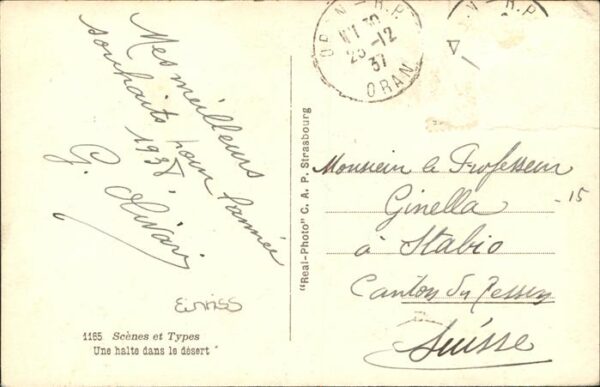 Mes meilleurs
souhaits pour l'année
1938.
G. Olivari
1165 Scènes et Types
Une halte dans le désert
"Real-Photo" C. A. P. Strasbourg
ORAN - R.P.
25-12
37
ORAN
R.P
Monsieur le Professeur
Ginella
à Stabio
Canton du Tessin
Suisse
-15